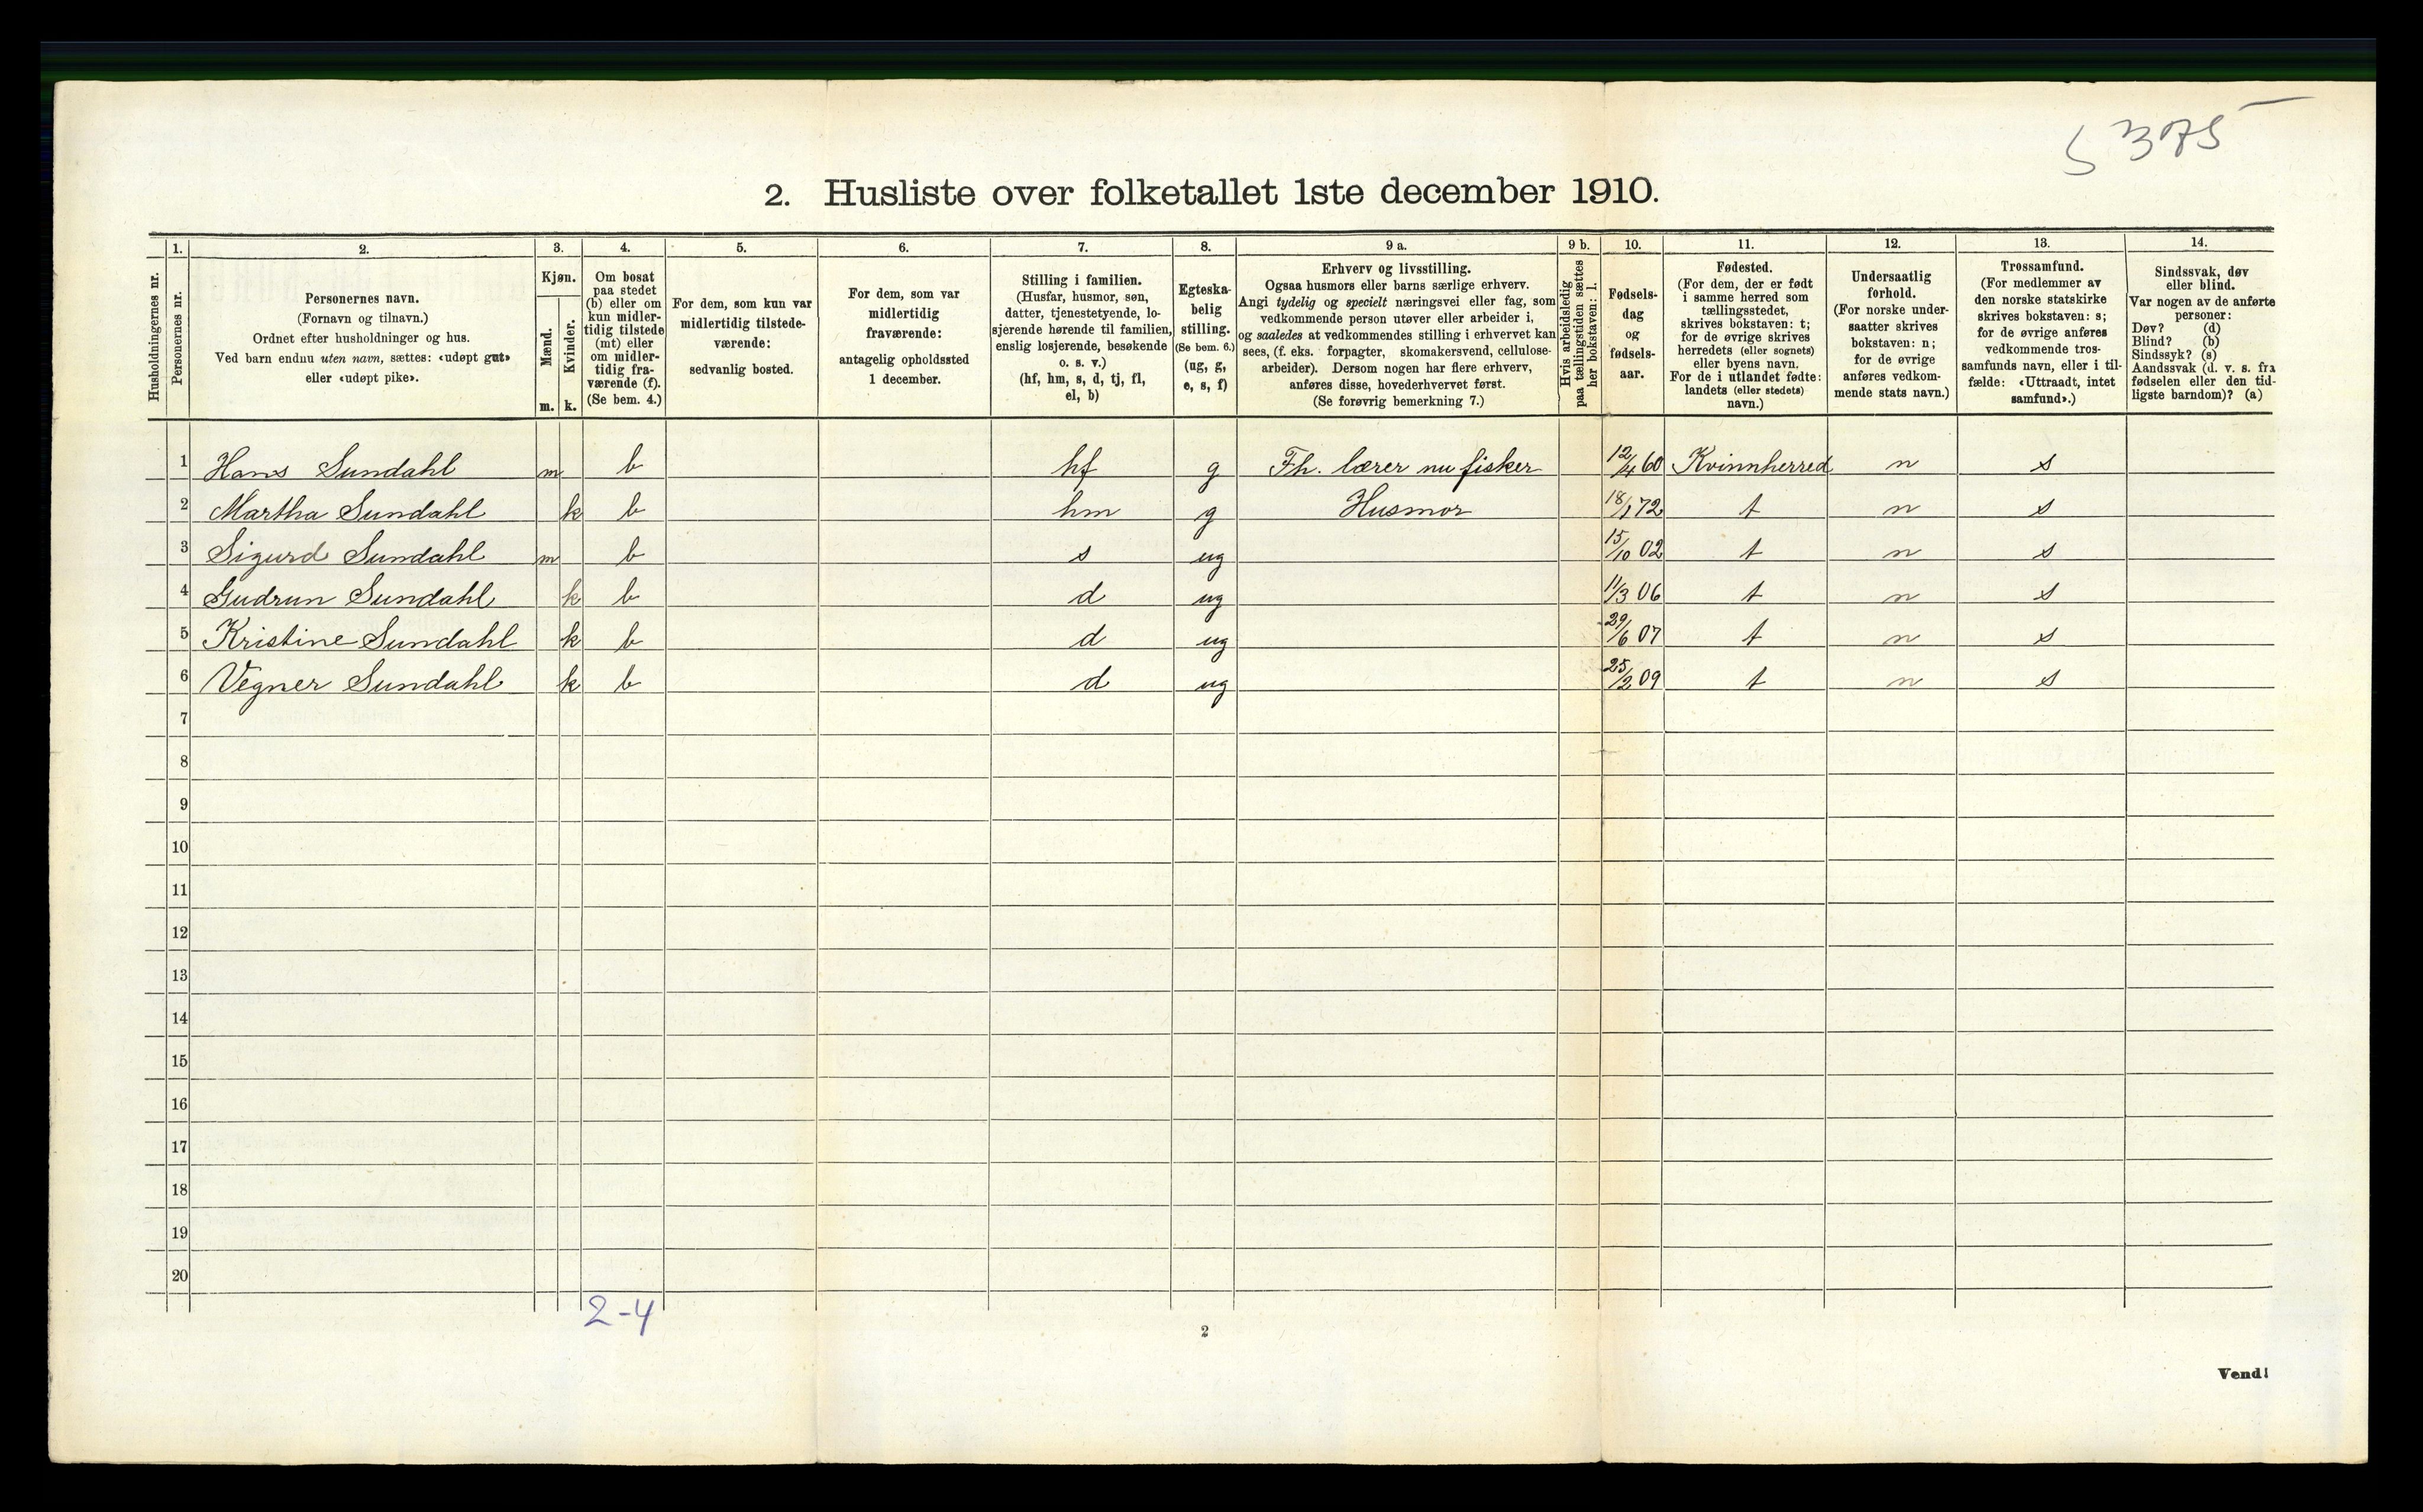 5375
2. Husliste over folketallet 1ste december 1910.
Husholdningernes nr.
1.
Personernes nr.
2.
Personernes navn.
(Fornavn og tilnavn.)
Ordnet efter husholdninger og hus.
Ved barn endnu uten navn, sættes: «udøpt gut»
eller «udøpt pike».
3.
Kjøn.
Mænd.
Kvinder.
m. k.
4.
Om bosat
paa stedet
(b) eller om
kun midler-
tidig tilstede
(mt) eller
om midler-
tidig fra-
værende (f).
(Se bem. 4.)
5.
For dem, som kun var
midlertidig tilstede-
værende:
sedvanlig bosted.
6.
For dem, som var
midlertidig
fraværende:
antagelig opholdssted
1 december.
7.
Stilling i familien.
(Husfar, husmor, søn,
datter, tjenestetyende, lo-
sjerende hørende til familien,
enslig losjerende, besøkende
o. s. v.)
(hf, hm, s, d, tj, fl,
el, b)
8.
Egteska-
belig
stilling.
(Se bem. 6.)
(ug, g,
e, s, f)
9 a.
Erhverv og livsstilling.
Ogsaa husmors eller barns særlige erhverv.
Angi tydelig og specielt næringsvei eller fag, som
vedkommende person utøver eller arbeider i,
og saaledes at vedkommendes stilling i erhvervet kan
sees, (f. eks. forpagter, skomakersvend, cellulose-
arbeider). Dersom nogen har flere erhverv,
anføres disse, hovederhvervet først.
(Se forøvrig bemerkning 7.)
9 b.
Hvis arbeidsledig
paa tællingstiden sættes
her bokstaven: l.
10.
Fødsels-
dag
og
fødsels-
aar.
11.
Fødested.
(For dem, der er født
i samme herred som
tællingsstedet,
skrives bokstaven: t;
for de øvrige skrives
herredets (eller sognets)
eller byens navn.
For de i utlandet fødte:
landets (eller stedets)
navn.)
12.
Undersaatlig
forhold.
(For norske under-
saatter skrives
bokstaven: n;
for de øvrige
anføres vedkom-
mende stats navn.)
13.
Trossamfund.
(For medlemmer av
den norske statskirke
skrives bokstaven: s;
for de øvrige anføres
vedkommende tros-
samfunds navn, eller i til-
fælde: «Uttraadt, intet
samfund».)
14.
Sindssvak, døv
eller blind.
Var nogen av de anførte
personer:
Døv? (d)
Blind? (b)
Sindssyk? (s)
Aandssvak (d. v. s. fra
fødselen eller den tid-
ligste barndom)? (a)
1 Hans Sundahl m b hf g Fh. lærer nu fisker 12/4 60 Kvinnherred n s
2 Martha Sundahl k b hm g Husmor 18/1 72 t n s
3 Sigurd Sundahl m b s ug 15/10 02 t n s
4 Gudrun Sundahl k b d ug 11/3 06 t n s
5 Kristine Sundahl k b d ug 29/6 07 t n s
6 Vegner Sundahl k b d ug 25/2 09 t n s
7
8
9
10
11
12
13
14
15
16
17
18
19
20
2-4
2
Vend!